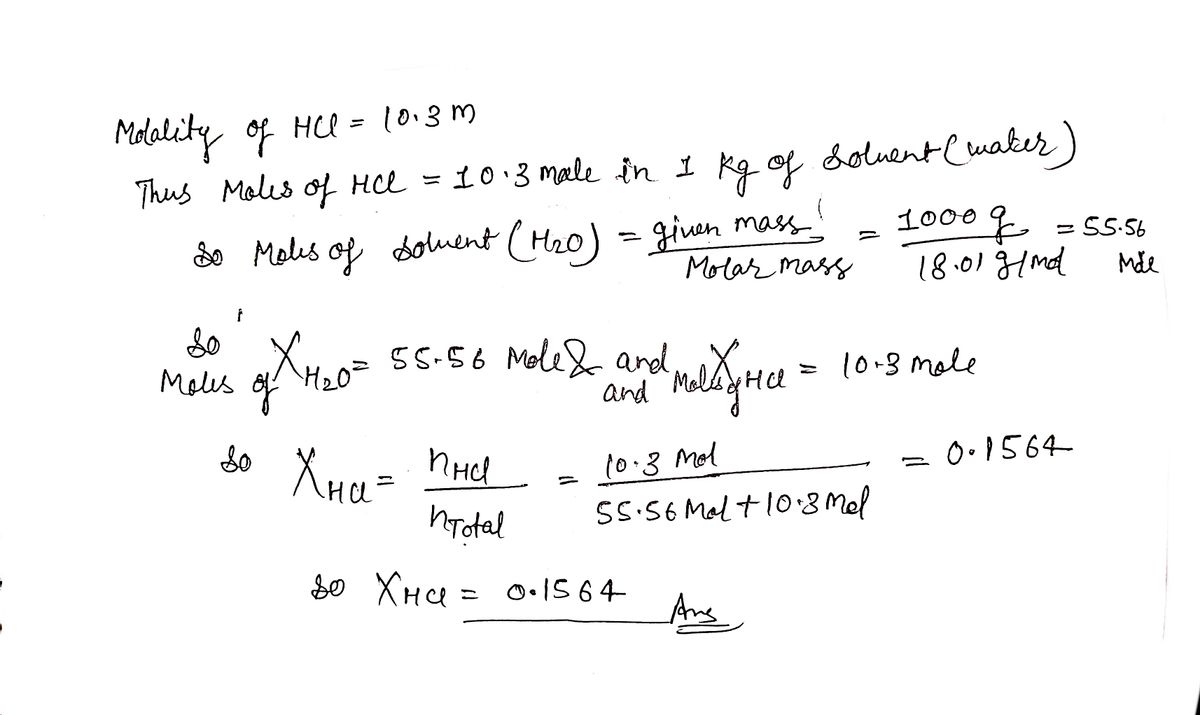 Molality of HCl = 10.3 m
Thus Moles of HCl = 10.3 mole in 1 Kg of Solvent (water)
So Moles of solvent (H2O) = given mass / Molar mass = 1000 g / 18.01 g/mol = 55.56 Mole
So Moles of XH2O = 55.56 Mole & and and Moles of XHCl = 10.3 mole
So XHCl = nHCl / nTotal = 10.3 Mol / 55.56 Mol + 10.3 Mol = 0.1564
So XHCl = 0.1564 Ans